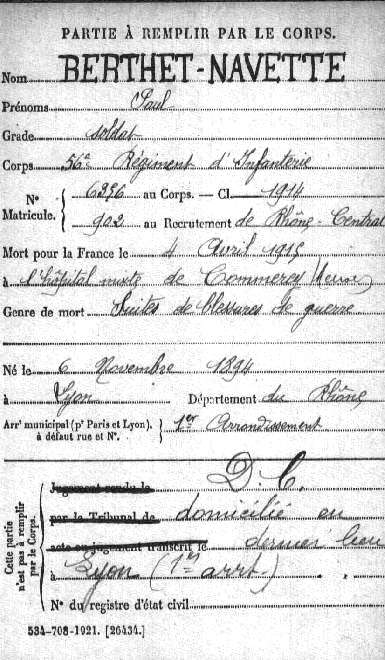 PARTIE À REMPLIR PAR LE CORPS.
Nom BERTHET-NAVETTE
Prénoms Paul
Grade soldat
Corps 56e Régiment d'Infanterie
N° Matricule. { 6396 au Corps. — Cl 1914
902 au Recrutement de Rhône-Central
Mort pour la France le 4 Avril 1915
à l'hôpital mixte de Commercy (Meuse)
Genre de mort Suites de blessures de guerre
Né le 6 Novembre 1894
à Lyon Département du Rhône
Arr' municipal (p' Paris et Lyon), à défaut rue et N°. } 1er Arrondissement
Cette partie n'est pas à remplir par le Corps.
Jugement rendu le D. C.
par le Tribunal de domicilié en
acte ou jugement transcrit le dernier lieu
à Lyon (1er arrt.)
N° du registre d'état civil
534-708-1921. [26434.]